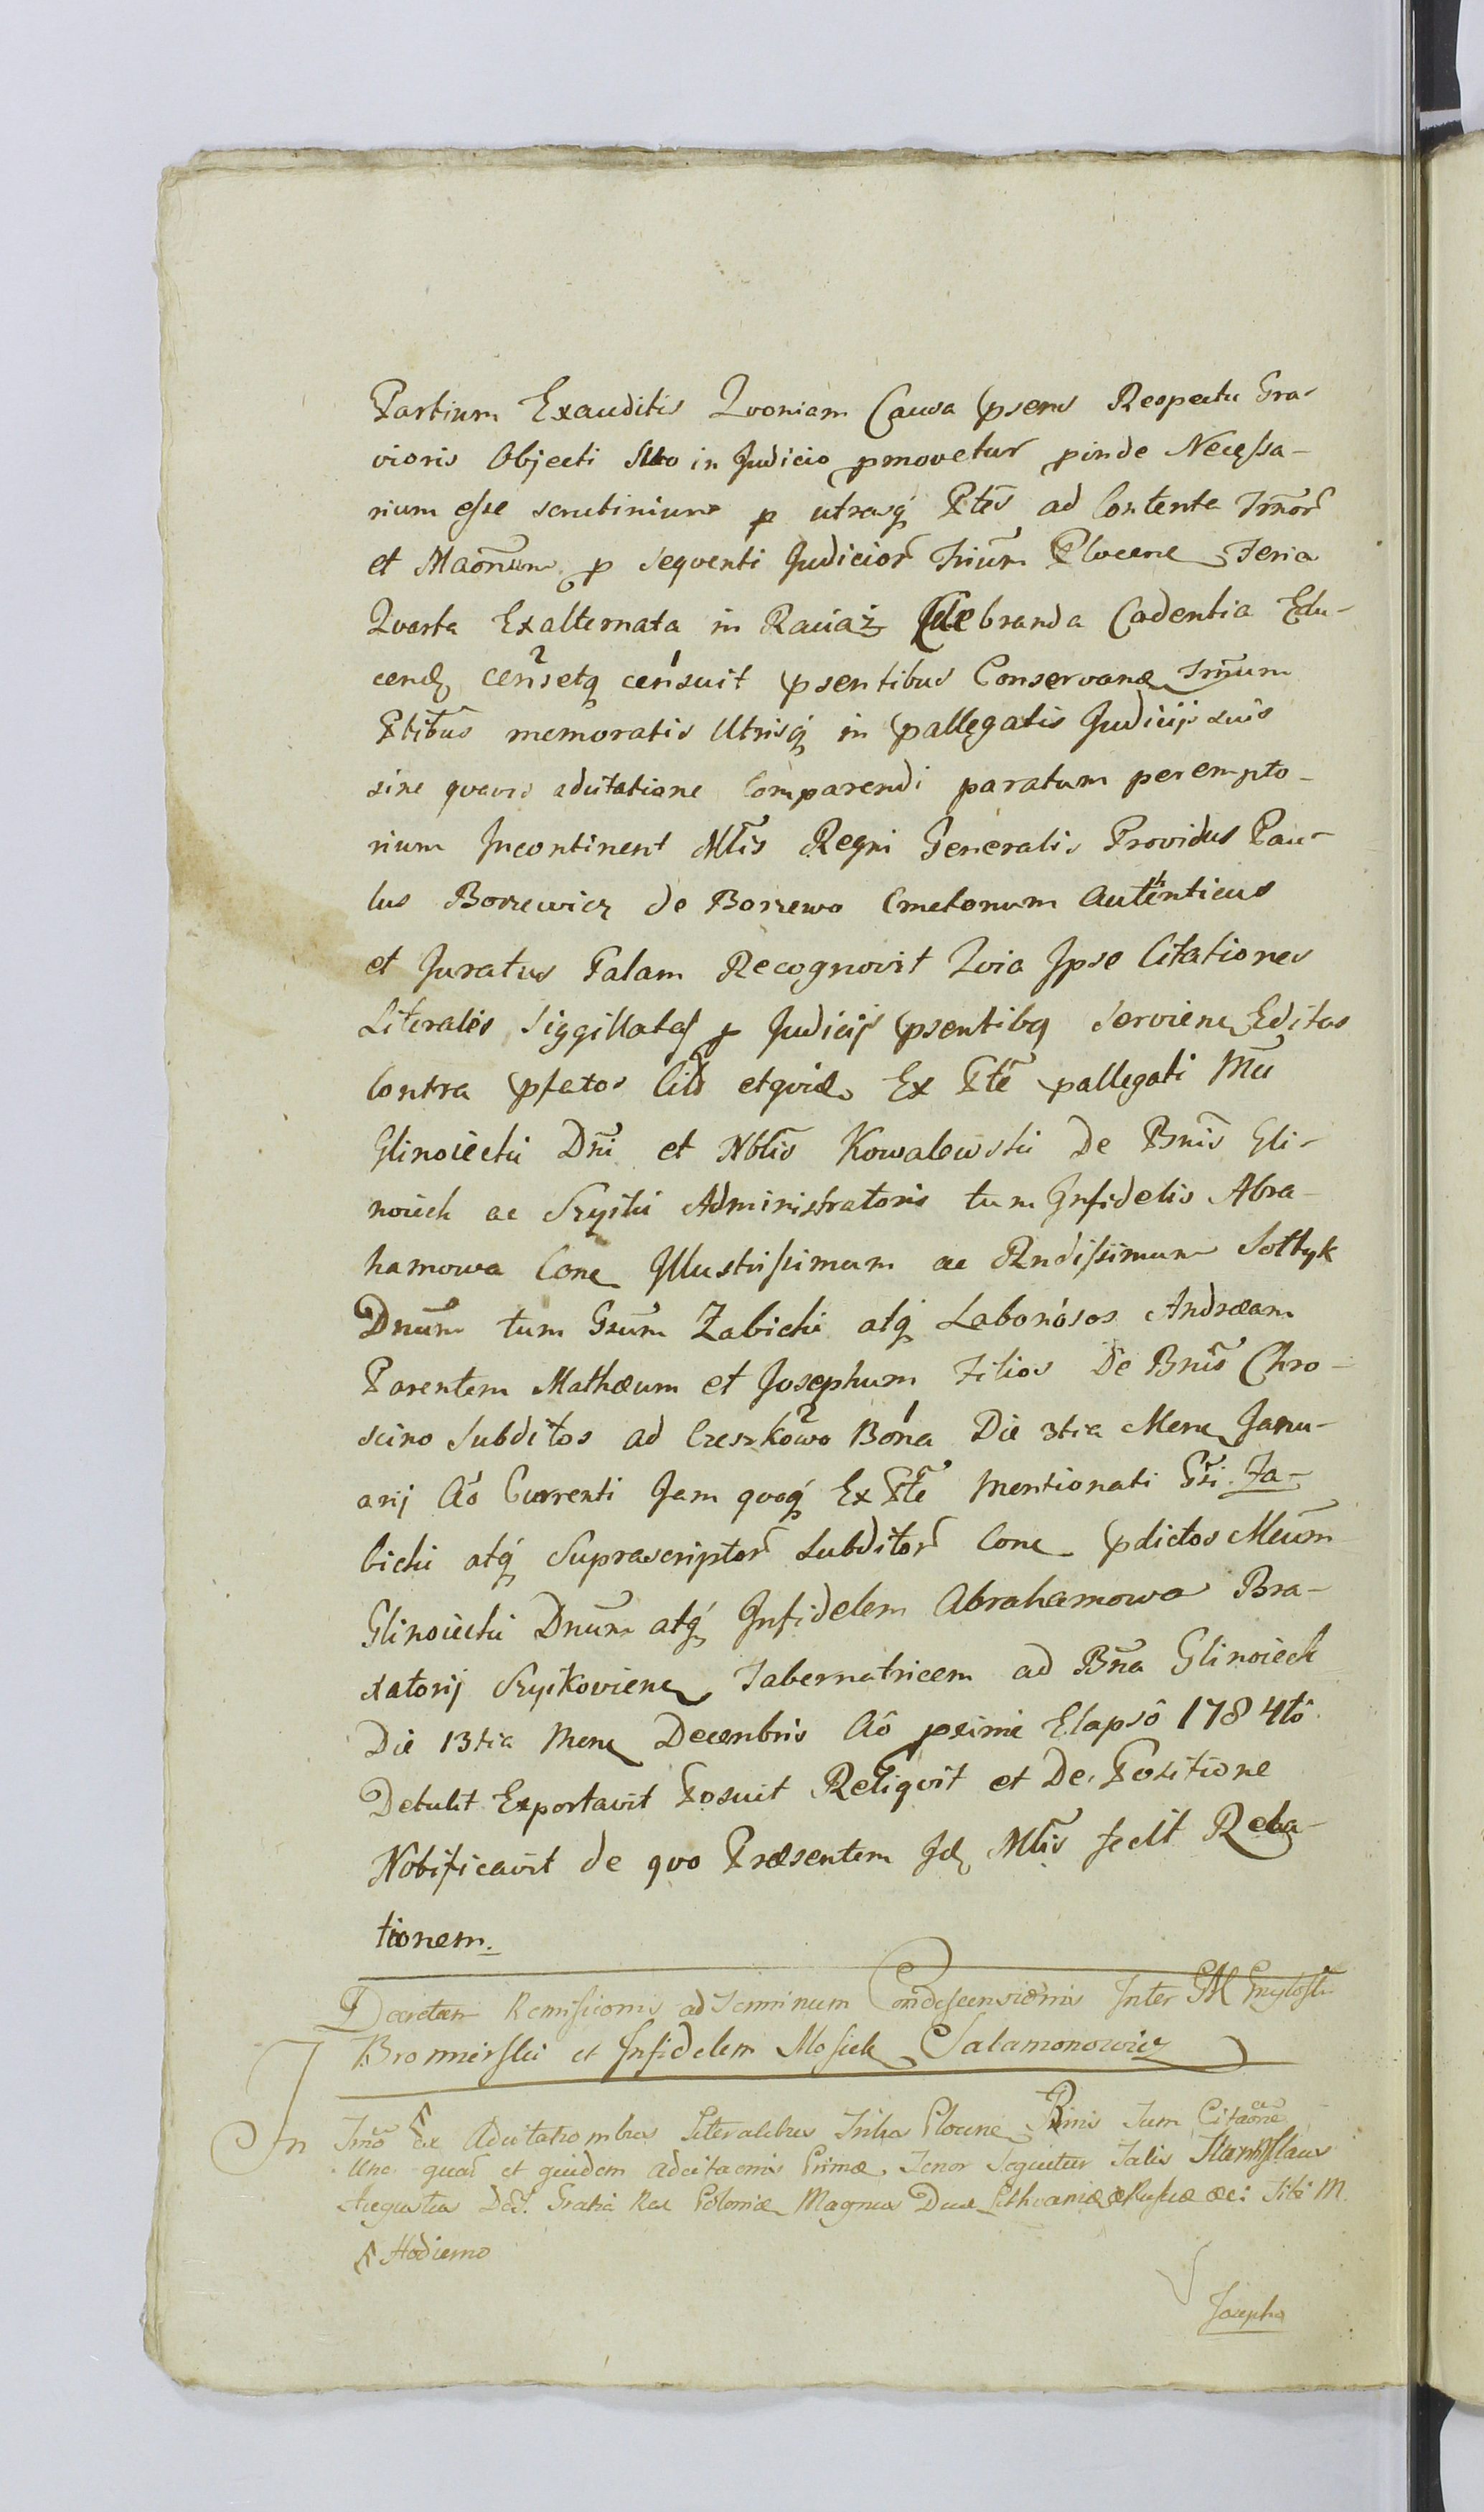 Partium Exauditis Qvoniam Causa psens Respectu Gra-
vioris Objecti Suo in Judicio pmovetur pinde Necessa-
rium esse scrutinium p utrasq Ptes ad Contenta Trnor
et Maonum p seqventi Judicior Trium Plocene Feria
Qvarta Exalternata in Raciąż Celebranda Cadentia Edu-
cend censetq censuit psentibus Conservane Trnum
Ptibus memoratis Utrisq in pallegatis Judicijs suis
sine qvavis adcitatione Comparendi paratum perempto-
rium Incontinent Mtis Regni Generalis Providus Pau-
lus Borzewicz de Borzewo Cmetonum Autenticus
et Juratus Palam Recognovit Qvia Ipse Citationes
Literales Siggillatas p Judicijs psentibq Serviene Editas
Contra pfatos Citd etqvide Ex Pte pallegati Mci
Glinoiecki Dni et Nbtis Kowalewski De Bnis Gli-
noieck ac Szyiki Administratoris tum Infidelis Abra-
hamowa Conc Illustrissimum ac Rndissimum Sołtyk
Dnum tum Gsum Zabicki atq Laboriosos Andræam
Parentem Mathæum et Josephum Filios De Bnis Chro-
scino Subditos ad Czeszkowo Bona Die 3tia Mene Janu-
arij Ao Currenti Jam qvoq Ex Pte Mentionati Gsi Za-
bicki atq Suprascriptor Subditor Conc pdictos Mcum
Glinoiecki Dnum atq Infidelem Abrahamowa Bra-
xatorij Szyikoviene Tabernatricem ad Bna Glinoieck
Die 13tia Mene Decembris Ao pxime Elapso 1784to
Detulit Exportavit Posuit Reliqvit et De Positione
Notificavit de qvo Præsentem Id Mtis fecit Rela-
tionem.
Decretum Remissionis ad Terminum Condescensionis Inter GM
Bromirski et Infidelem Mosiek Salamonowicz
In Trno ex Adcitationibus Literalibus Tribus Plocene Tum Citaone
Una quar et quidem adcitaonis Primæ Tenor Sequitur Talis Stanislaus
Augustus Dei Gratia Rex Poloniæ Magnus Dux Lithvaniæ Russiæ &c: Tibi M.
Hodierno
Josepho